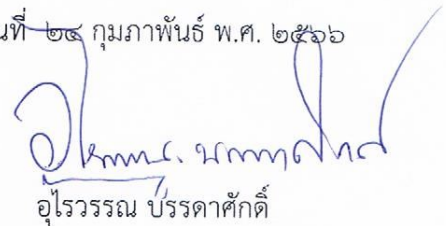 นที่ ๒๔ กุมภาพันธ์ พ.ศ. ๒๕๖๖
อุไรวรรณ บรรดาศักดิ์